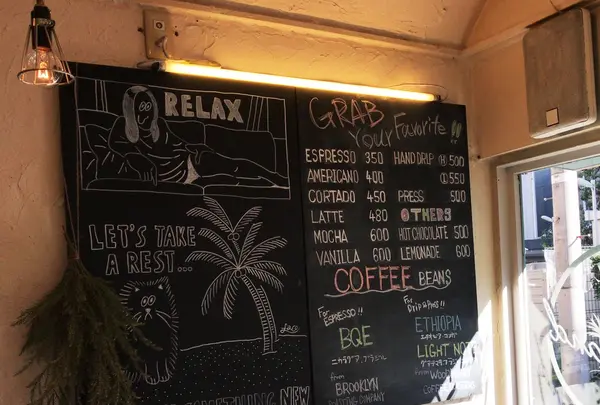 RELAX
LET'S TAKE
A REST...
SOMETHING NEW
GRAB
Your Favorite!!
ESPRESSO 350
AMERICANO 400
CORTADO 450
LATTE 480
MOCHA 600
VANILLA 600
HAND DRIP Ⓗ 500
Ⓘ 550
PRESS 500
OTHERS
HOT CHOCOLATE 500
LEMONADE 500
COFFEE BEANS
For ESPRESSO!!
BQE
from
BROOKLYN
ROASTING COMPANY
For DRIP & PRESS!!
ETHIOPIA
LIGHT NOTE
from
COFFEE